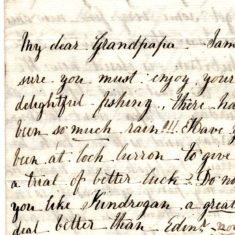 My dear Grandpapa - I am
sure you must enjoy your
delightful fishing, there ha
been so much rain!!! Have y
been at loch curron - To give
a trial of better luck? Do no
you like Kindrogan a great
deal better than Edinr